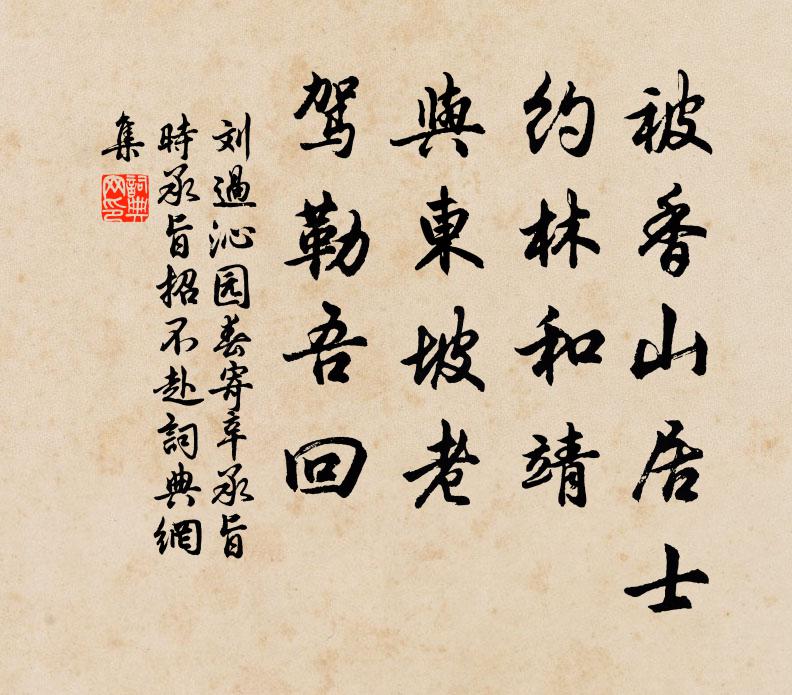 被香山居士
约林和靖
與東坡老
駕勒吾回
刘過沁园春寄辛承旨
時承旨招不赴詞典網
集
詞典
网印